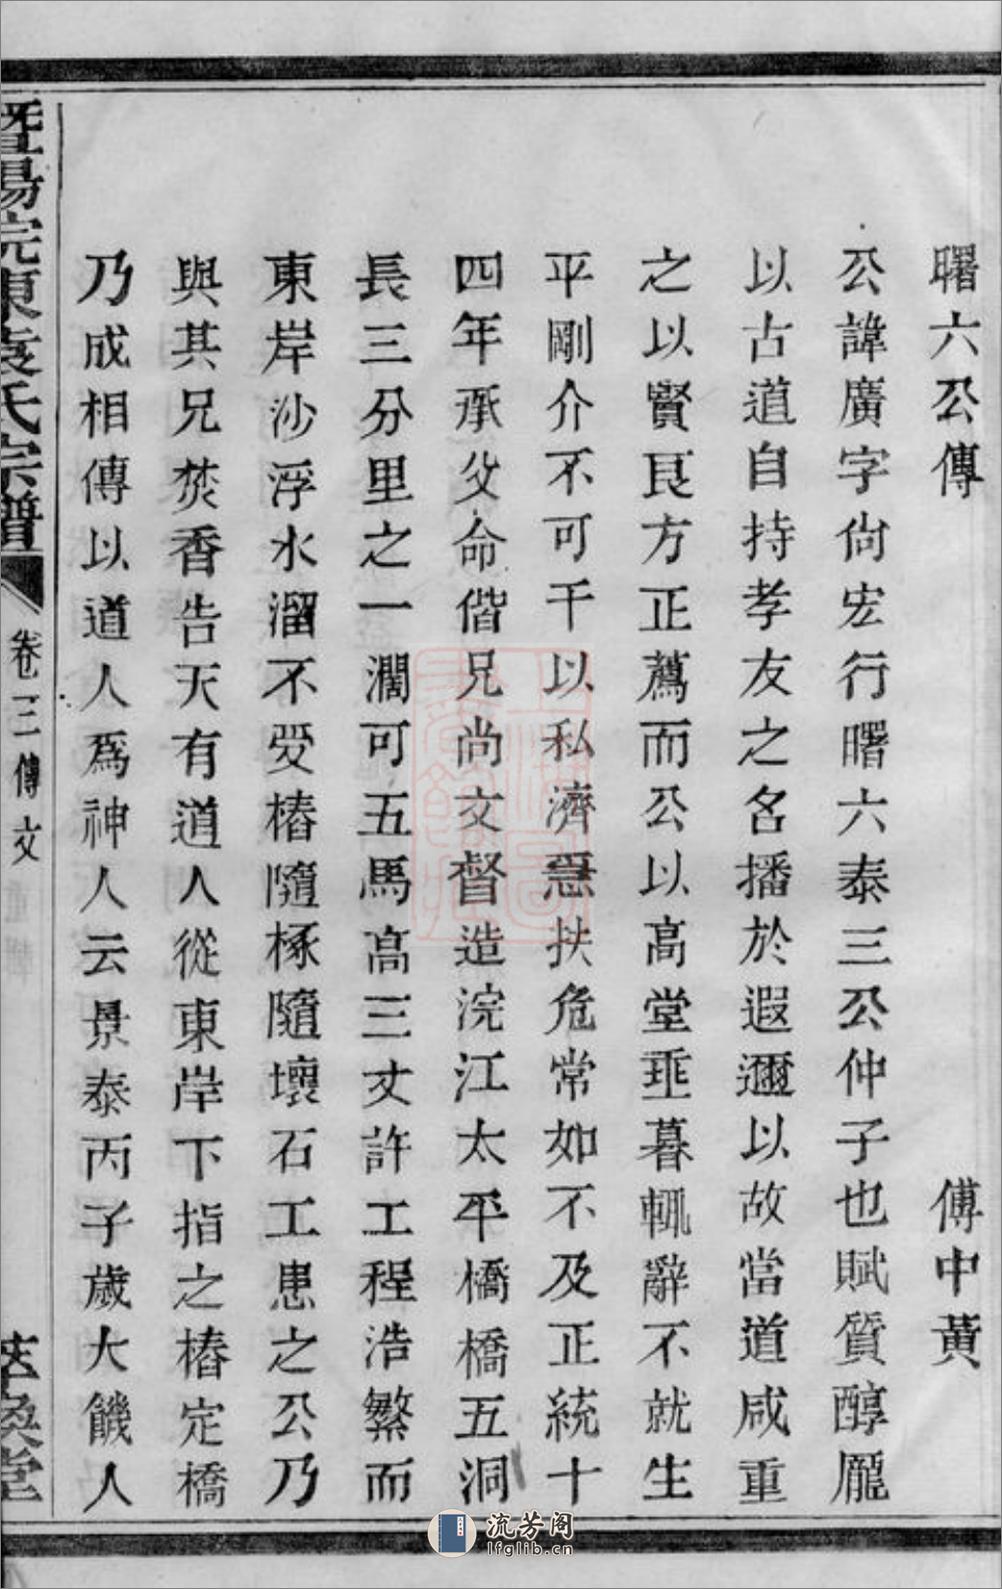 曙六公傳 傅中黃
公諱廣字尙宏行曙六泰三公仲子也賦質醇厖
以古道自持孝友之名播於遐邇以故當道咸重
之以賢良方正薦而公以高堂垂暮輒辭不就生
平剛介不可干以私濟急扶危常如不及正統十
四年承父命偕兄尚文督造浣江太平橋橋五洞
長三分里之一濶可五馬高三丈許工程浩繁而
東岸沙浮水溜不受樁隨椓隨壞石工患之公乃
與其兄焚香告天有道人從東岸下指之樁定橋
乃成相傳以道人爲神人云景泰丙子歲大饑人
暨陽浣東袁氏宗譜 卷三 傳文
流芳阁
lfglib.cn